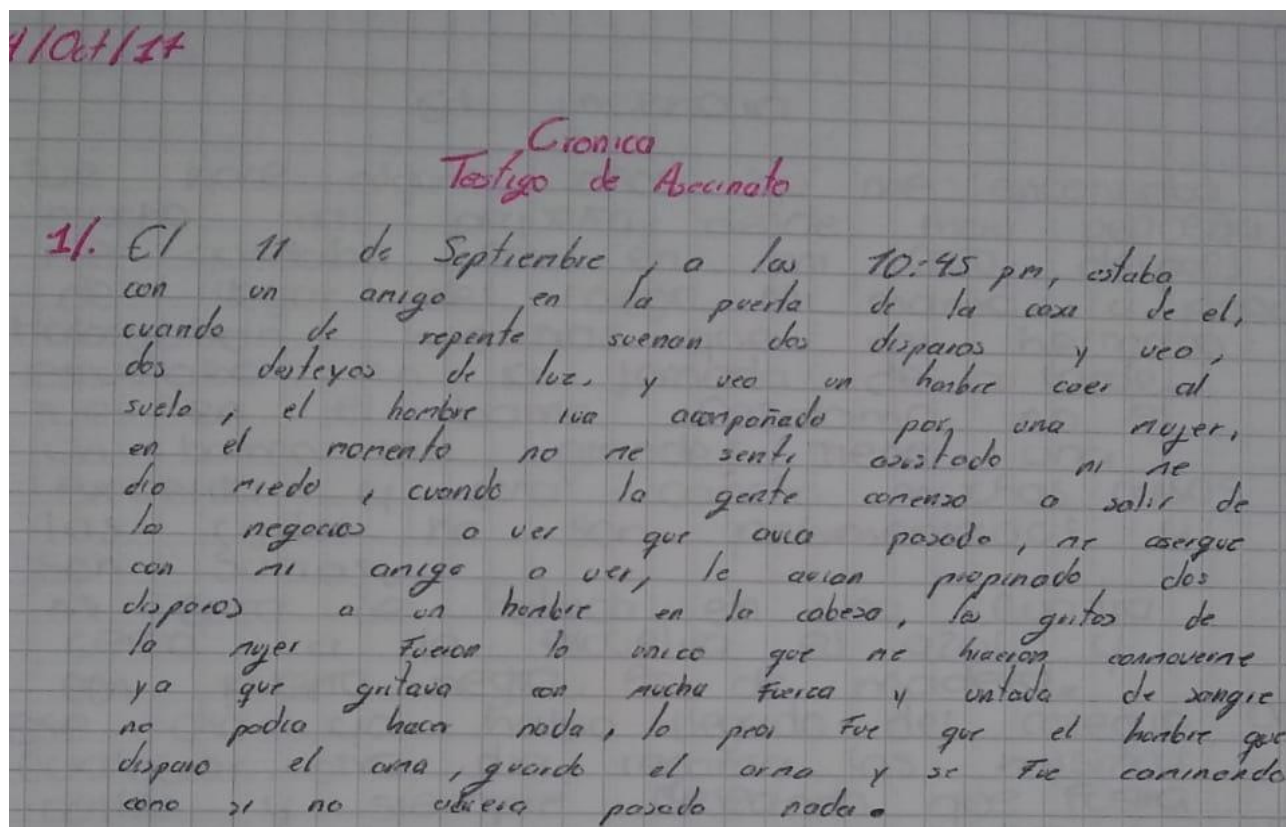 4/Oct/17
Cronica
Testigo de Asecinato
1/. El 11 de Septiembre, a las 10:45 pm, estaba
con un amigo en la puerta de la casa de el,
cuando de repente suenan dos disparos y veo,
dos desteyos de luz, y veo un hombre caer al
suelo, el hombre iva acompañado por una mujer,
en el momento no me senti asustado ni me
dio miedo, cuando la gente comenzo a salir de
lo negocios a ver que avia pasado, me asergue
con mi amigo a ver, le avian propinado dos
disparos a un hombre en la cabeza, los gritos de
la mujer fueron lo unico que me hicieron conmoverme
ya que gritava con mucha fuerca y untada de sangre
no podia hacer nada, lo peor fue que el hombre que
disparo el arma, guardo el arma y se fue caminando
como si no ubiera pasado nada.